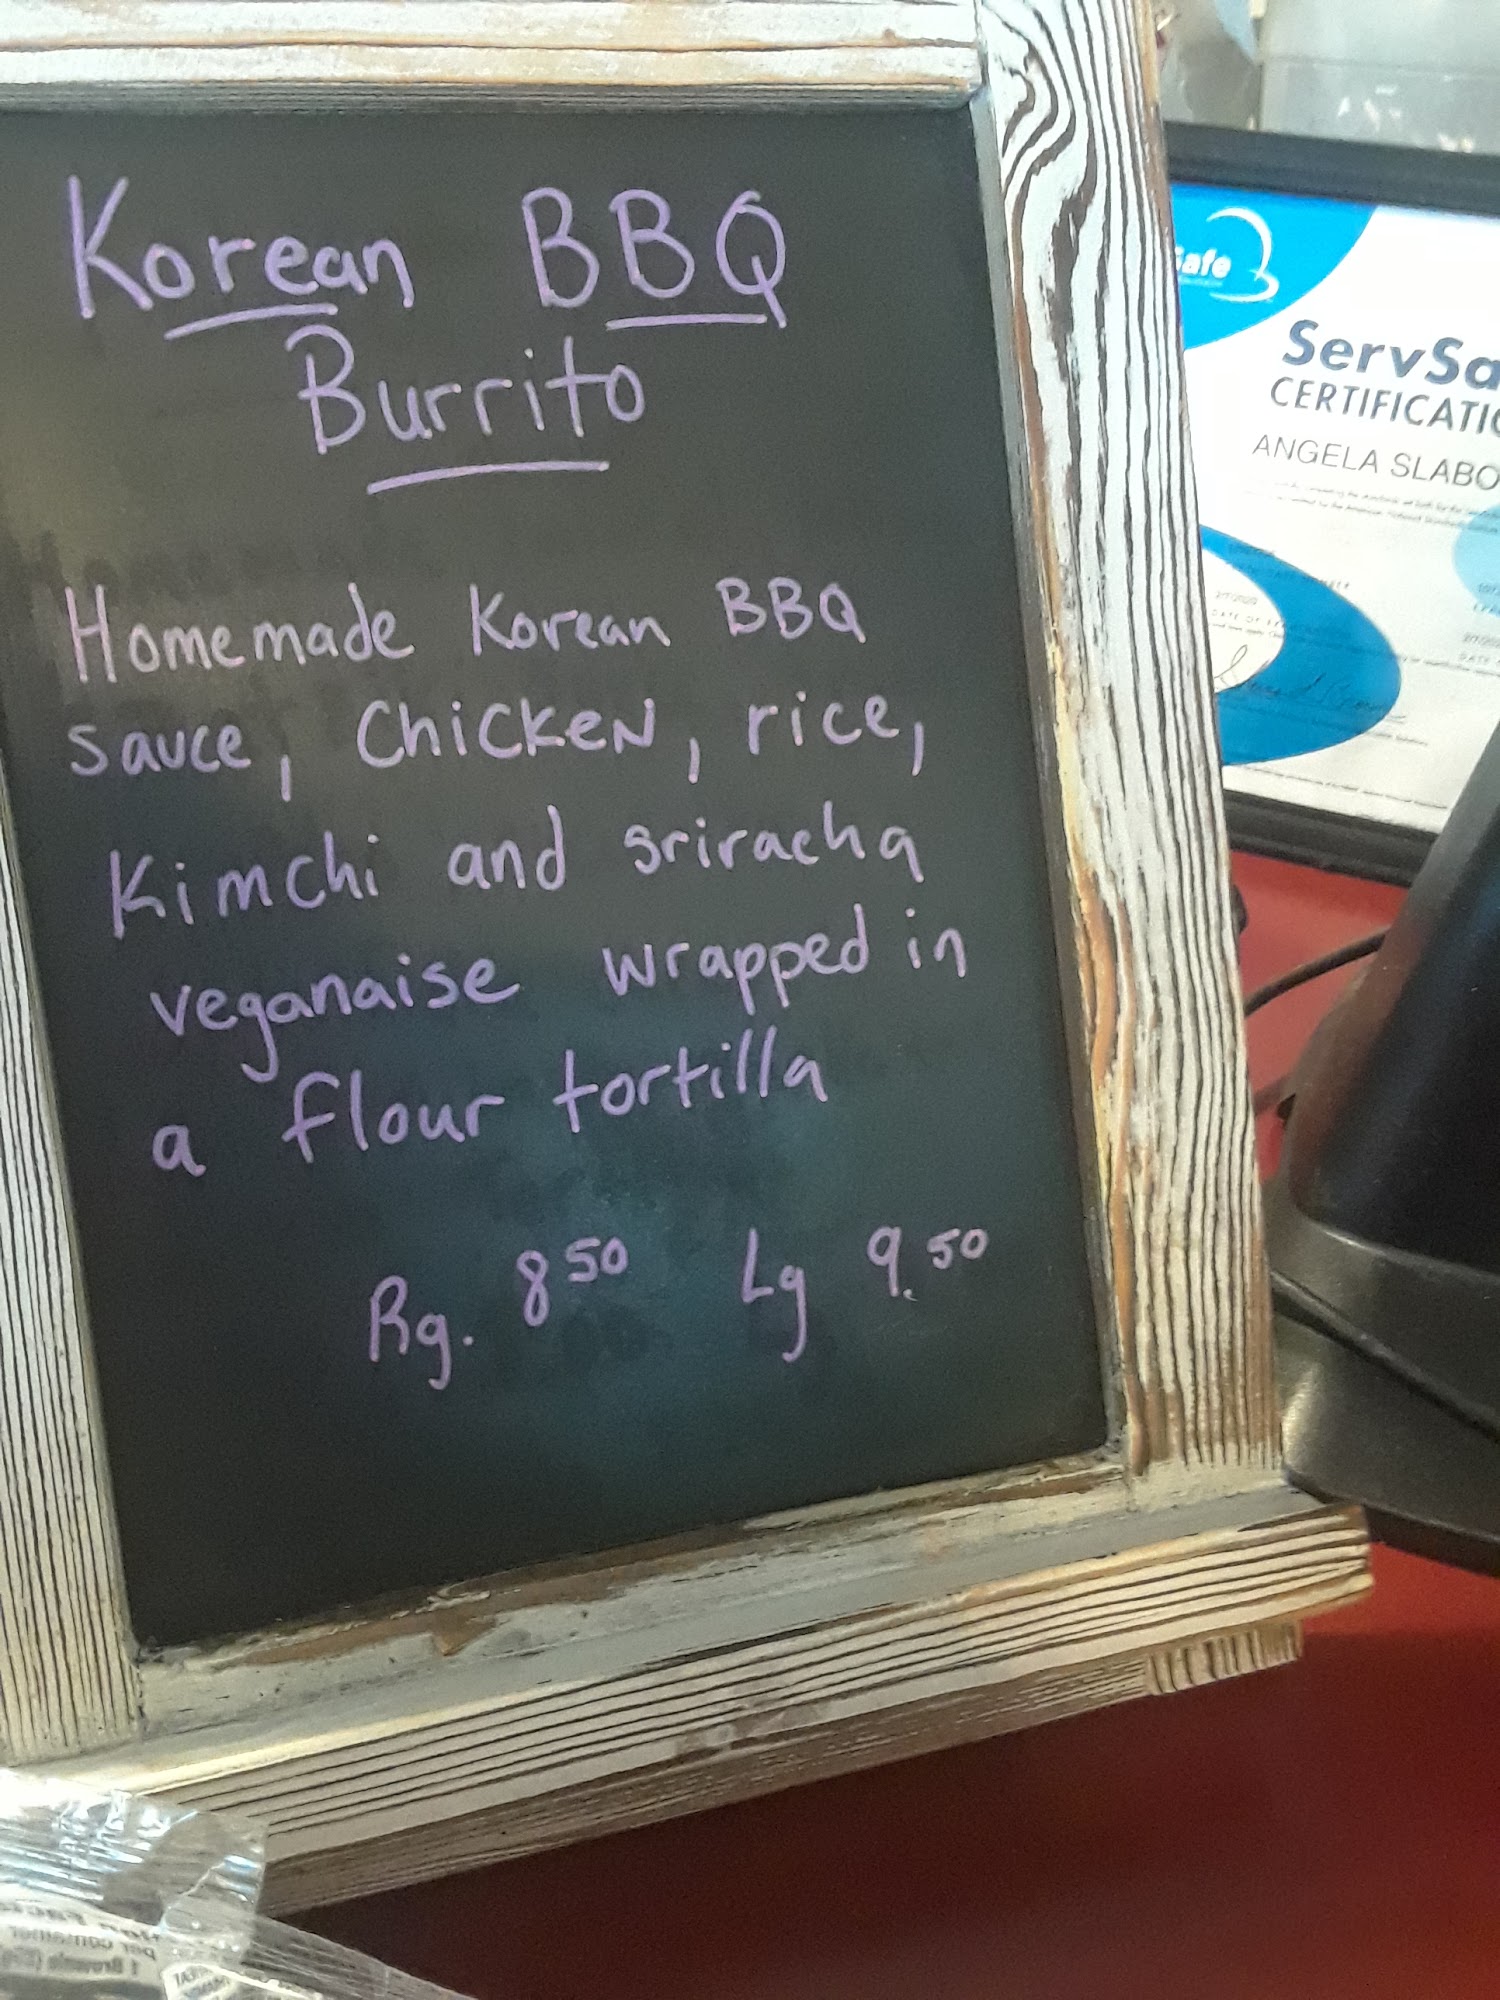 Korean BBQ
Burrito
Homemade Korean BBQ
sauce, Chicken, rice,
Kimchi and sriracha
veganaise wrapped in
a flour tortilla
Rg. 8 50 Lg 9.50
Safe
ServSa
CERTIFICATIO
ANGELA SLABO
2/7/2020
per container
1 Brownie